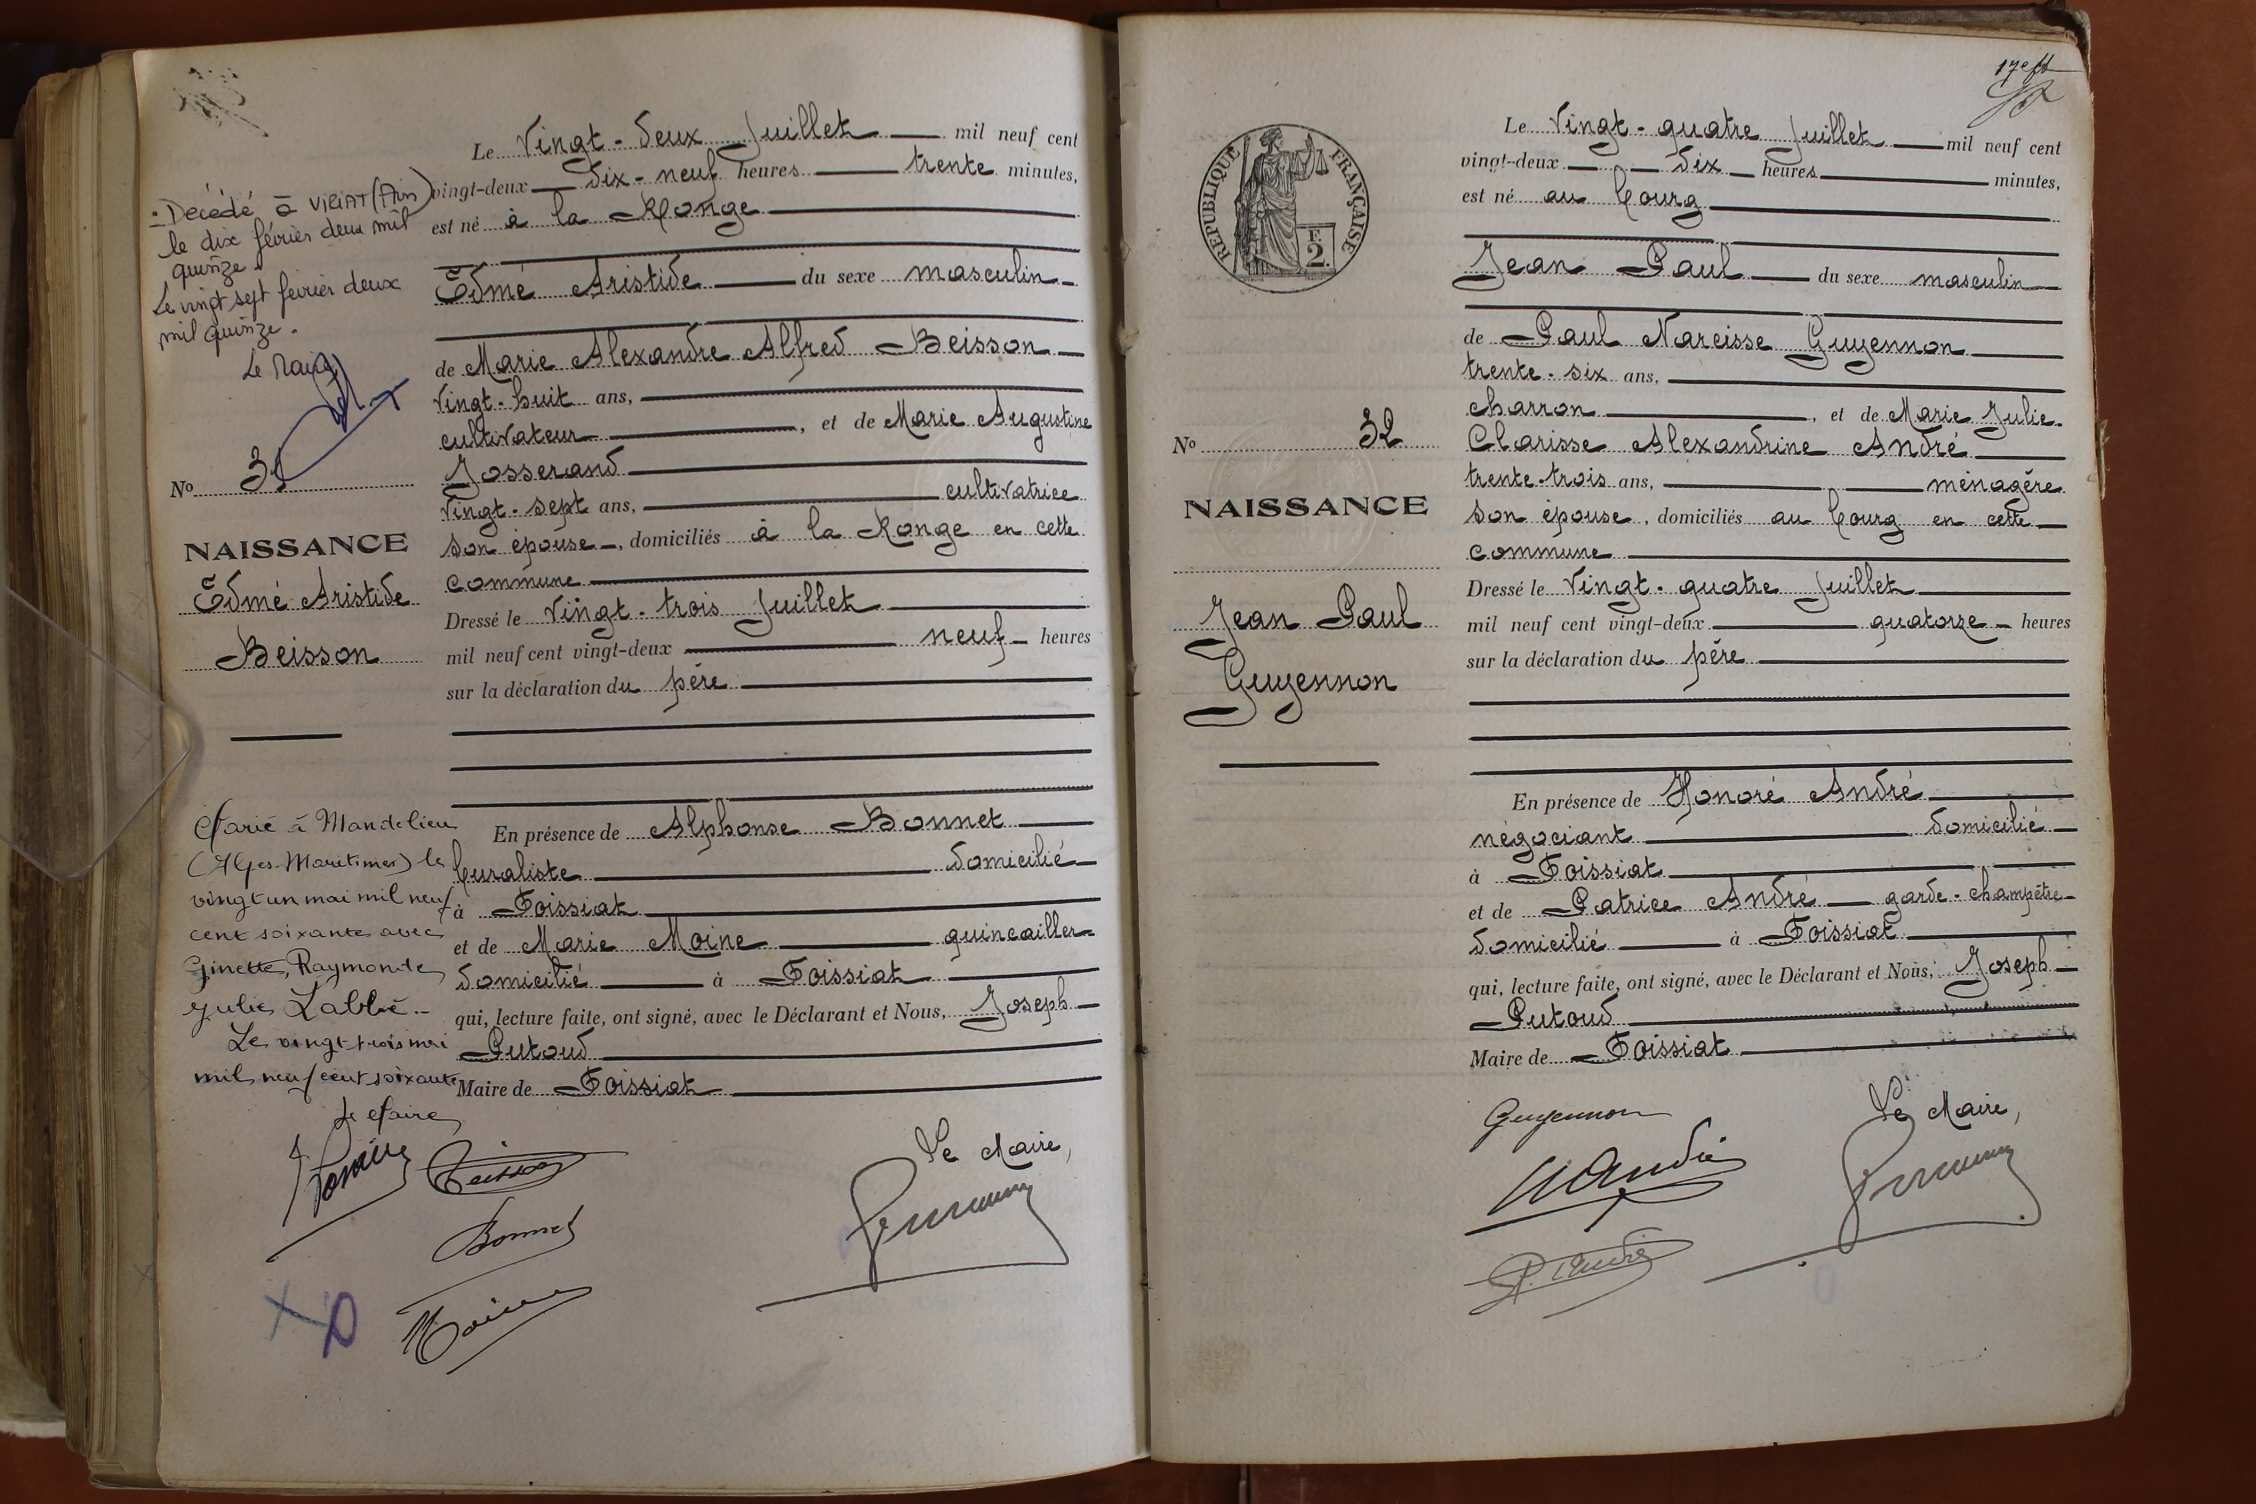 Décédé à VIRIAT (Ain)
le dix février deux mil
quinze.
Le vingt sept février deux
mil quinze.
Le Maire
No 31
NAISSANCE
Edmé Aristide
Beisson
Marié à Mandelieu
(Alpes-Maritimes) le
vingt un mai mil neuf
cent soixante avec
Ginette, Raymonde
Julie Labbé.-
Le vingt-trois mai
mil neuf cent soixante
Le Maire
Le Vingt-deux Juillet mil neuf cent
vingt-deux dix-neuf heures trente minutes,
est né à la Ronge
Edmé Aristide du sexe masculin
de Marie Alexandre Alfred Beisson
Vingt-huit ans,
cultivateur, et de Marie Augustine
Josserand
Vingt-sept ans, cultivatrice
son épouse, domiciliés à la Ronge en cette
commune
Dressé le Vingt-trois Juillet
mil neuf cent vingt-deux neuf heures
sur la déclaration du père
En présence de Alphonse Bonnet
buraliste domicilié
à Foissiat
et de Marie Moine quincailler
domicilié à Foissiat
qui, lecture faite, ont signé, avec le Déclarant et Nous, Joseph
Putoud
Maire de Foissiat
Le Maire,
Beisson
Bonnet
Moine
REPUBLIQUE FRANÇAISE
F.
2.
No 32
NAISSANCE
Jean Paul
Guyennon
Le Vingt-quatre Juillet mil neuf cent
vingt-deux dix heures minutes,
est né au bourg
Jean Paul du sexe masculin
de Paul Narcisse Guyennon
trente-six ans,
charron, et de Marie Julie
Clarisse Alexandrine André
trente-trois ans, ménagère
son épouse, domiciliés au bourg en cette
commune
Dressé le Vingt-quatre Juillet
mil neuf cent vingt-deux quatorze heures
sur la déclaration du père
En présence de Honoré André
négociant domicilié
à Foissiat
et de Patrice André garde-champêtre
domicilié à Foissiat
qui, lecture faite, ont signé, avec le Déclarant et Nous, Joseph
Putoud
Maire de Foissiat
Le Maire,
Guyennon
H André
P. André